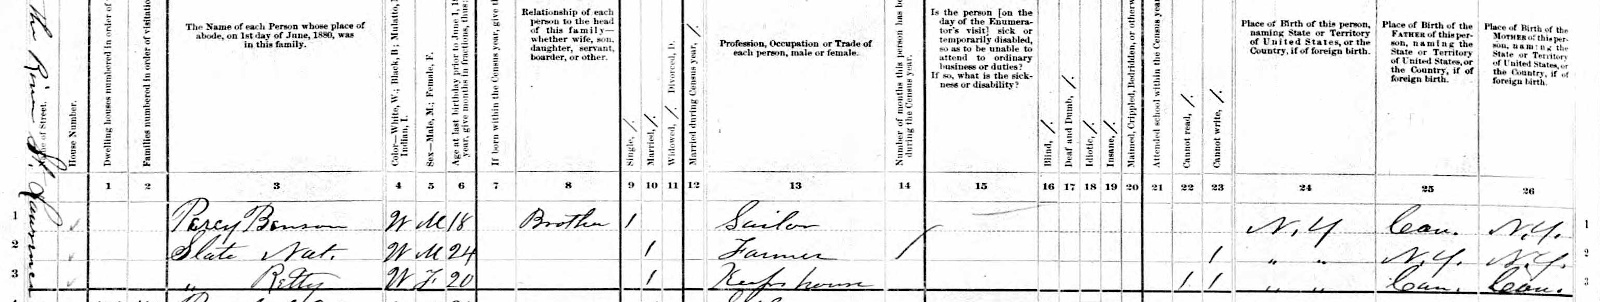 the River St. Lawrence
Name of Street.
House Number.
Dwelling houses numbered in order of
Families numbered in order of visitation
The Name of each Person whose place of
abode, on 1st day of June, 1880, was
in this family.
Color—White, W.; Black, B.; Mulatto,
Indian, I.
Sex—Male, M.; Female, F.
Age at last birthday prior to June 1, 18
year, give months in fractions, thus:
If born within the Census year, give the
Relationship of each
person to the head
of this family—
whether wife, son,
daughter, servant,
boarder, or other.
Single, /.
Married, /.
Widowed, /. Divorced, D.
Married during Census year, /.
Profession, Occupation or Trade of
each person, male or female.
Number of months this person has be
during the Census year.
Is the person [on the
day of the Enumera-
tor's visit] sick or
temporarily disabled,
so as to be unable to
attend to ordinary
business or duties?
If so, what is the sick-
ness or disability?
Blind, /.
Deaf and Dumb, /.
Idiotic, /.
Insane, /.
Maimed, Crippled, Bedridden, or otherw
Attended school within the Census year
Cannot read, /.
Cannot write, /.
Place of Birth of this person,
naming State or Territory
of United States, or the
Country, if of foreign birth.
Place of Birth of the
FATHER of this per-
son, naming the
State or Territory
of United States, or
the Country, if of
foreign birth.
Place of Birth of the
MOTHER of this per-
son, naming the
State or Territory
of United States, or
the Country, if of
foreign birth.
1 2 3 4 5 6 7 8 9 10 11 12 13 14 15 16 17 18 19 20 21 22 23 24 25 26
1 Percy Benson W M 18 Brother 1 Sailor N.Y Can. N.Y. 1
2 Slate Nat. W M 24 1 Farmer / 1 " " N.Y. N.Y. 2
3 " Retty W F. 20 1 Keeps house 1 1 " " Can. Can. 3